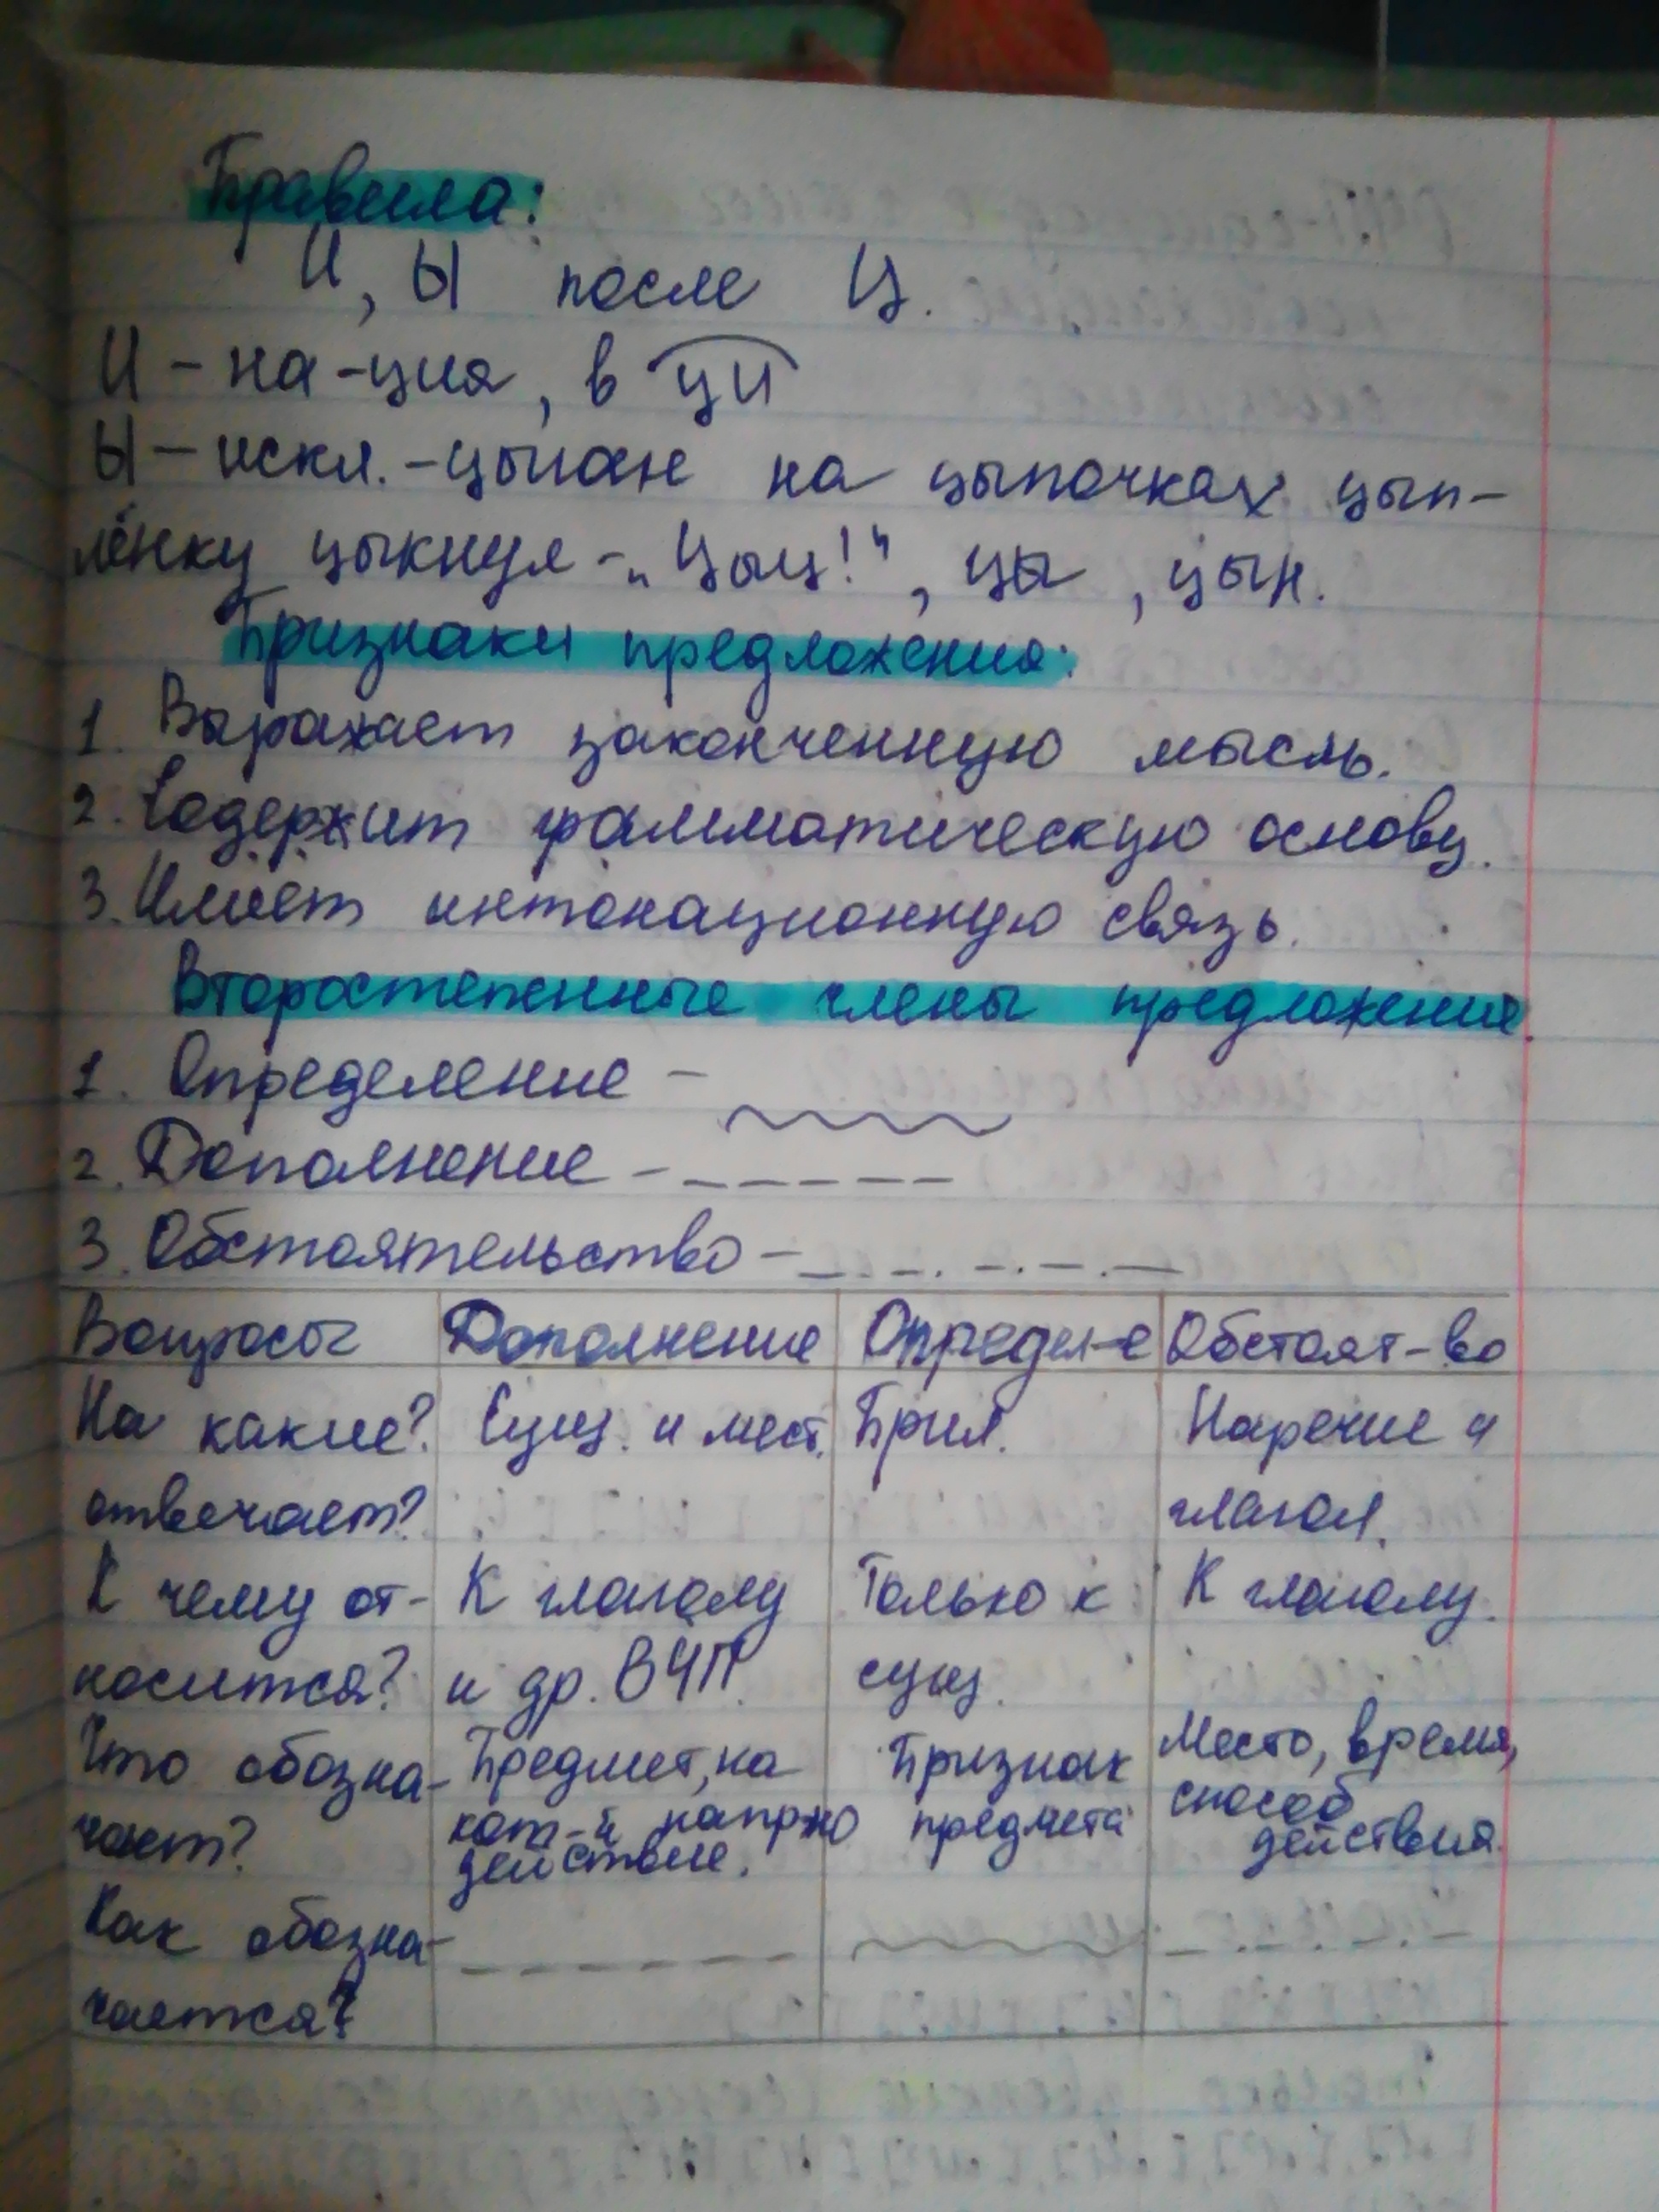 Правила:
И, Ы после Ц.
И - на -ция, в ци
Ы - искл. - цыган на цыпочках цып-
лёнку цыкнул - „Цыц!“, цы, цын.
Признаки предложения:
1. Выражает законченную мысль.
2. Содержит грамматическую основу.
3. Имеет интонационную связь.
Второстепенные члены предложения.
1. Определение -
2. Дополнение -
3. Обстоятельство -
Вопросы Дополнение Определ-е Обстоят-во
На какие? Сущ. и мест. Прил. Наречие и
отвечает? глагол.
К чему от- К глаголу Только к К глаголу.
носится? и др. ВЧП. сущ.
Что обозна- Предмет, на Признак Место, время,
чают? кот-й напр-но предмета способ
действие. действия.
Как обозна-
чается?